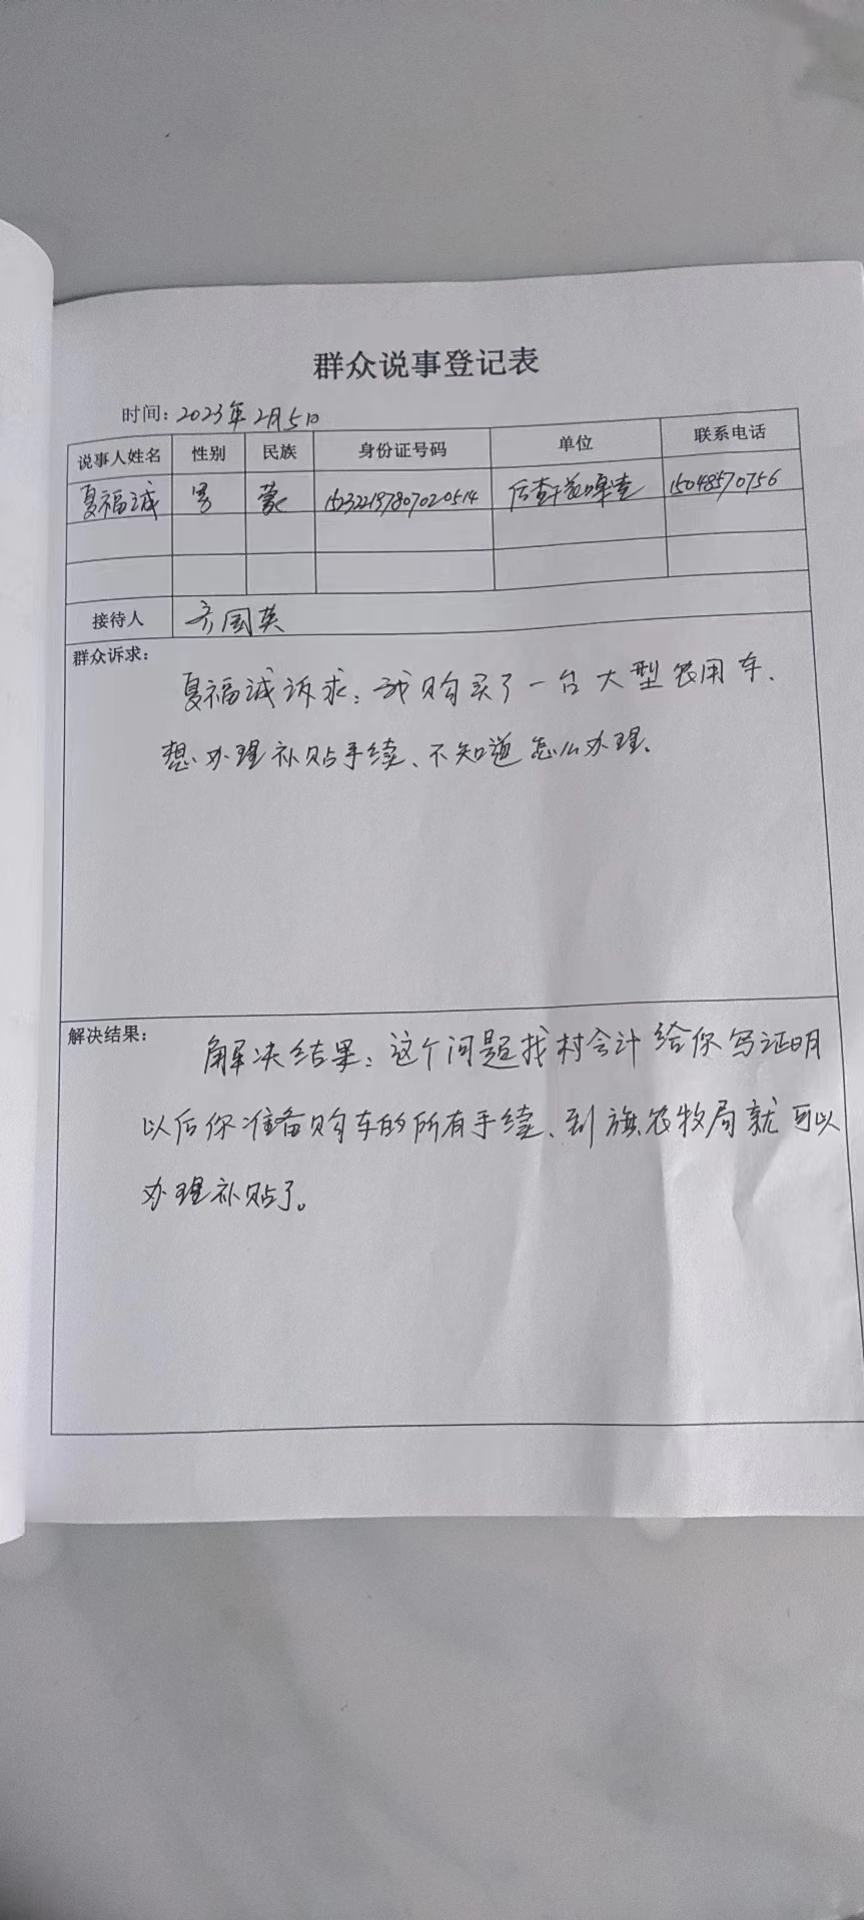 群众说事登记表
时间：2023年2月5日
说事人姓名 性别 民族 身份证号码 单位 联系电话
夏福诚 男 蒙 152322197807020514 后查干 15048570756
接待人 齐国英
群众诉求：
夏福诚诉求：我购买了一台大型农用车、
想办理补贴手续、不知道怎么办理。
解决结果：
解决结果：这个问题找村会计给你写证明
以后你准备购车的所有手续、到旗农牧局就可以
办理补贴了。